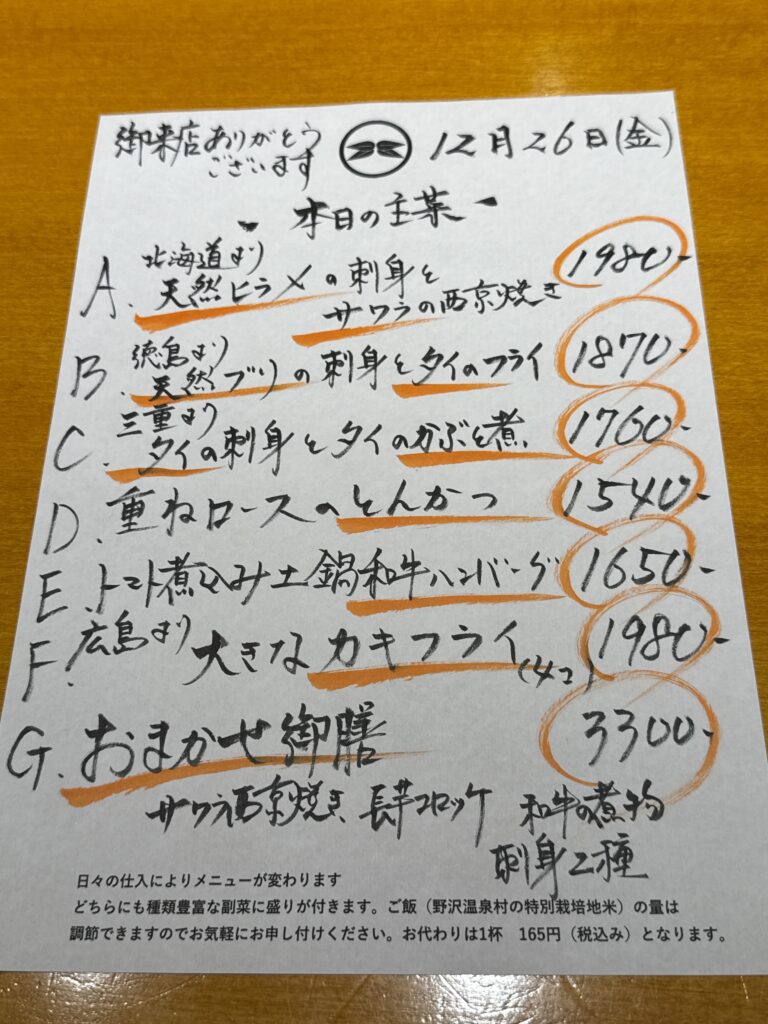 御来店ありがとう
ございます
12月26日(金)
本日の主菜
A. 北海道より
天然ヒラメの刺身と
サワラの西京焼き 1980-
B. 徳島より
天然ブリの刺身とタイのフライ 1870-
C. 三重より
タイの刺身とタイのかぶと煮 1760-
D. 重ねロースのとんかつ 1540-
E. トマト煮込み土鍋和牛ハンバーグ 1650-
F. 広島より 大きなカキフライ(4コ) 1980-
G. おまかせ御膳 3300-
サワラ西京焼き 長芋コロッケ 和牛の煮物
刺身2種
日々の仕入によりメニューが変わります
どちらにも種類豊富な副菜に盛りが付きます。ご飯（野沢温泉村の特別栽培地米）の量は
調節できますのでお気軽にお申し付けください。お代わりは1杯　165円（税込み）となります。